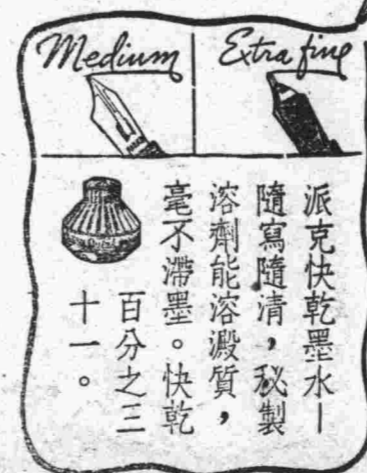 Medium
Extra fine
派克快乾墨水—
隨寫隨清，秘製
溶劑能溶澱質，
毫不滯墨。快乾
百分之三
十一。